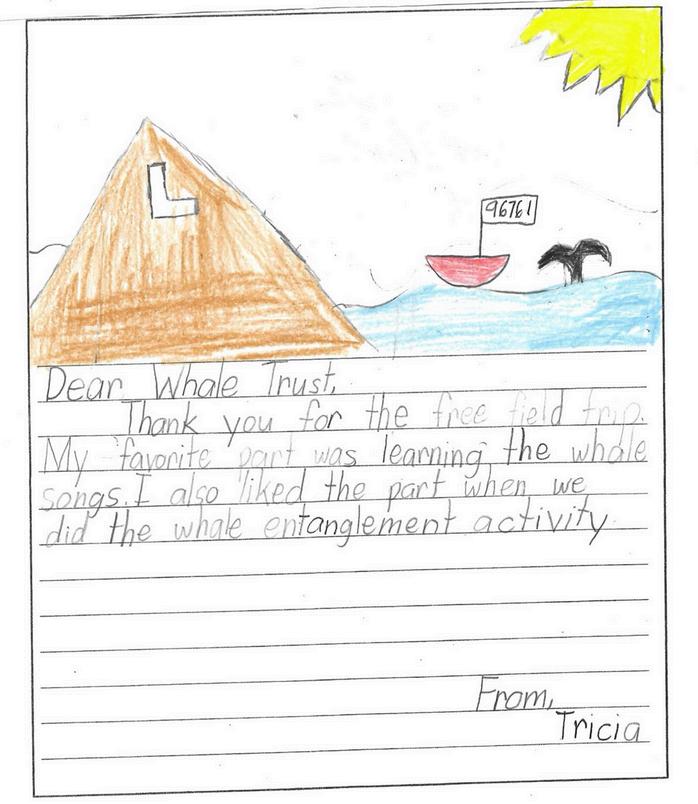 L
96761
Dear Whale Trust,
Thank you for the free field trip.
My favorite part was learning the whale
songs. I also liked the part when we
did the whale entanglement activity
From,
Tricia